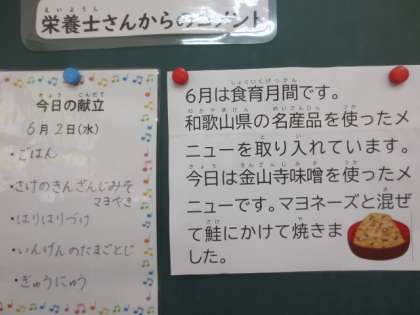 栄養士さんからのコメント
今日の献立
6月2日(水)
・ごはん
・さけのきんざんじみそ
マヨやき
・はりはりづけ
・いんげんのたまごとじ
・ぎゅうにゅう
6月は食育月間です。
和歌山県の名産品を使ったメ
ニューを取り入れています。
今日は金山寺味噌を使ったメ
ニューです。マヨネーズと混ぜ
て鮭にかけて焼きま
した。